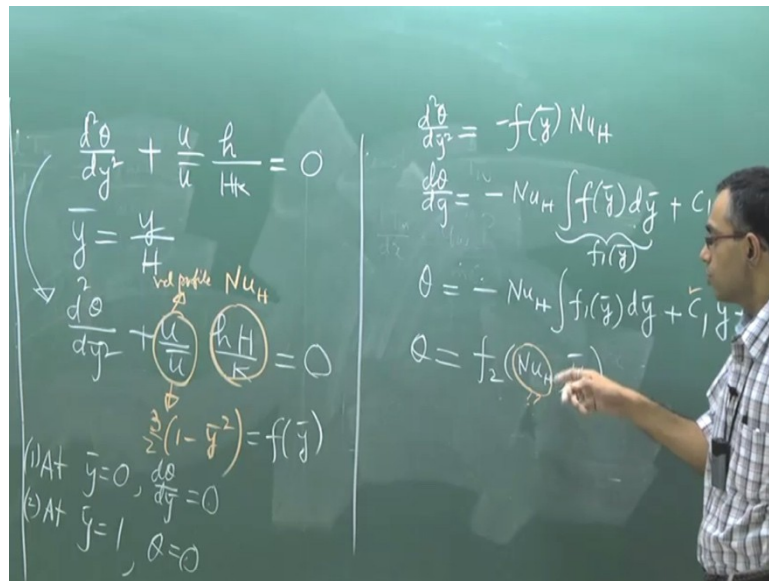 d²θ/dy² + u/ū h/Hk = 0
ȳ = y/H
vel profile Nu_H
d²θ/dȳ² + u/ū hH/k = 0
3/2 (1 - ȳ²) = f(ȳ)
(1) At ȳ = 0, dθ/dȳ = 0
(2) At ȳ = 1, θ = 0
d²θ/dȳ² = -f(ȳ) Nu_H
dθ/dȳ = - Nu_H ∫ f(ȳ) dȳ + C₁
f₁(ȳ)
θ = - Nu_H ∫ f₁(ȳ) dȳ + C₁ y +
θ = f₂(Nu_H, ȳ)